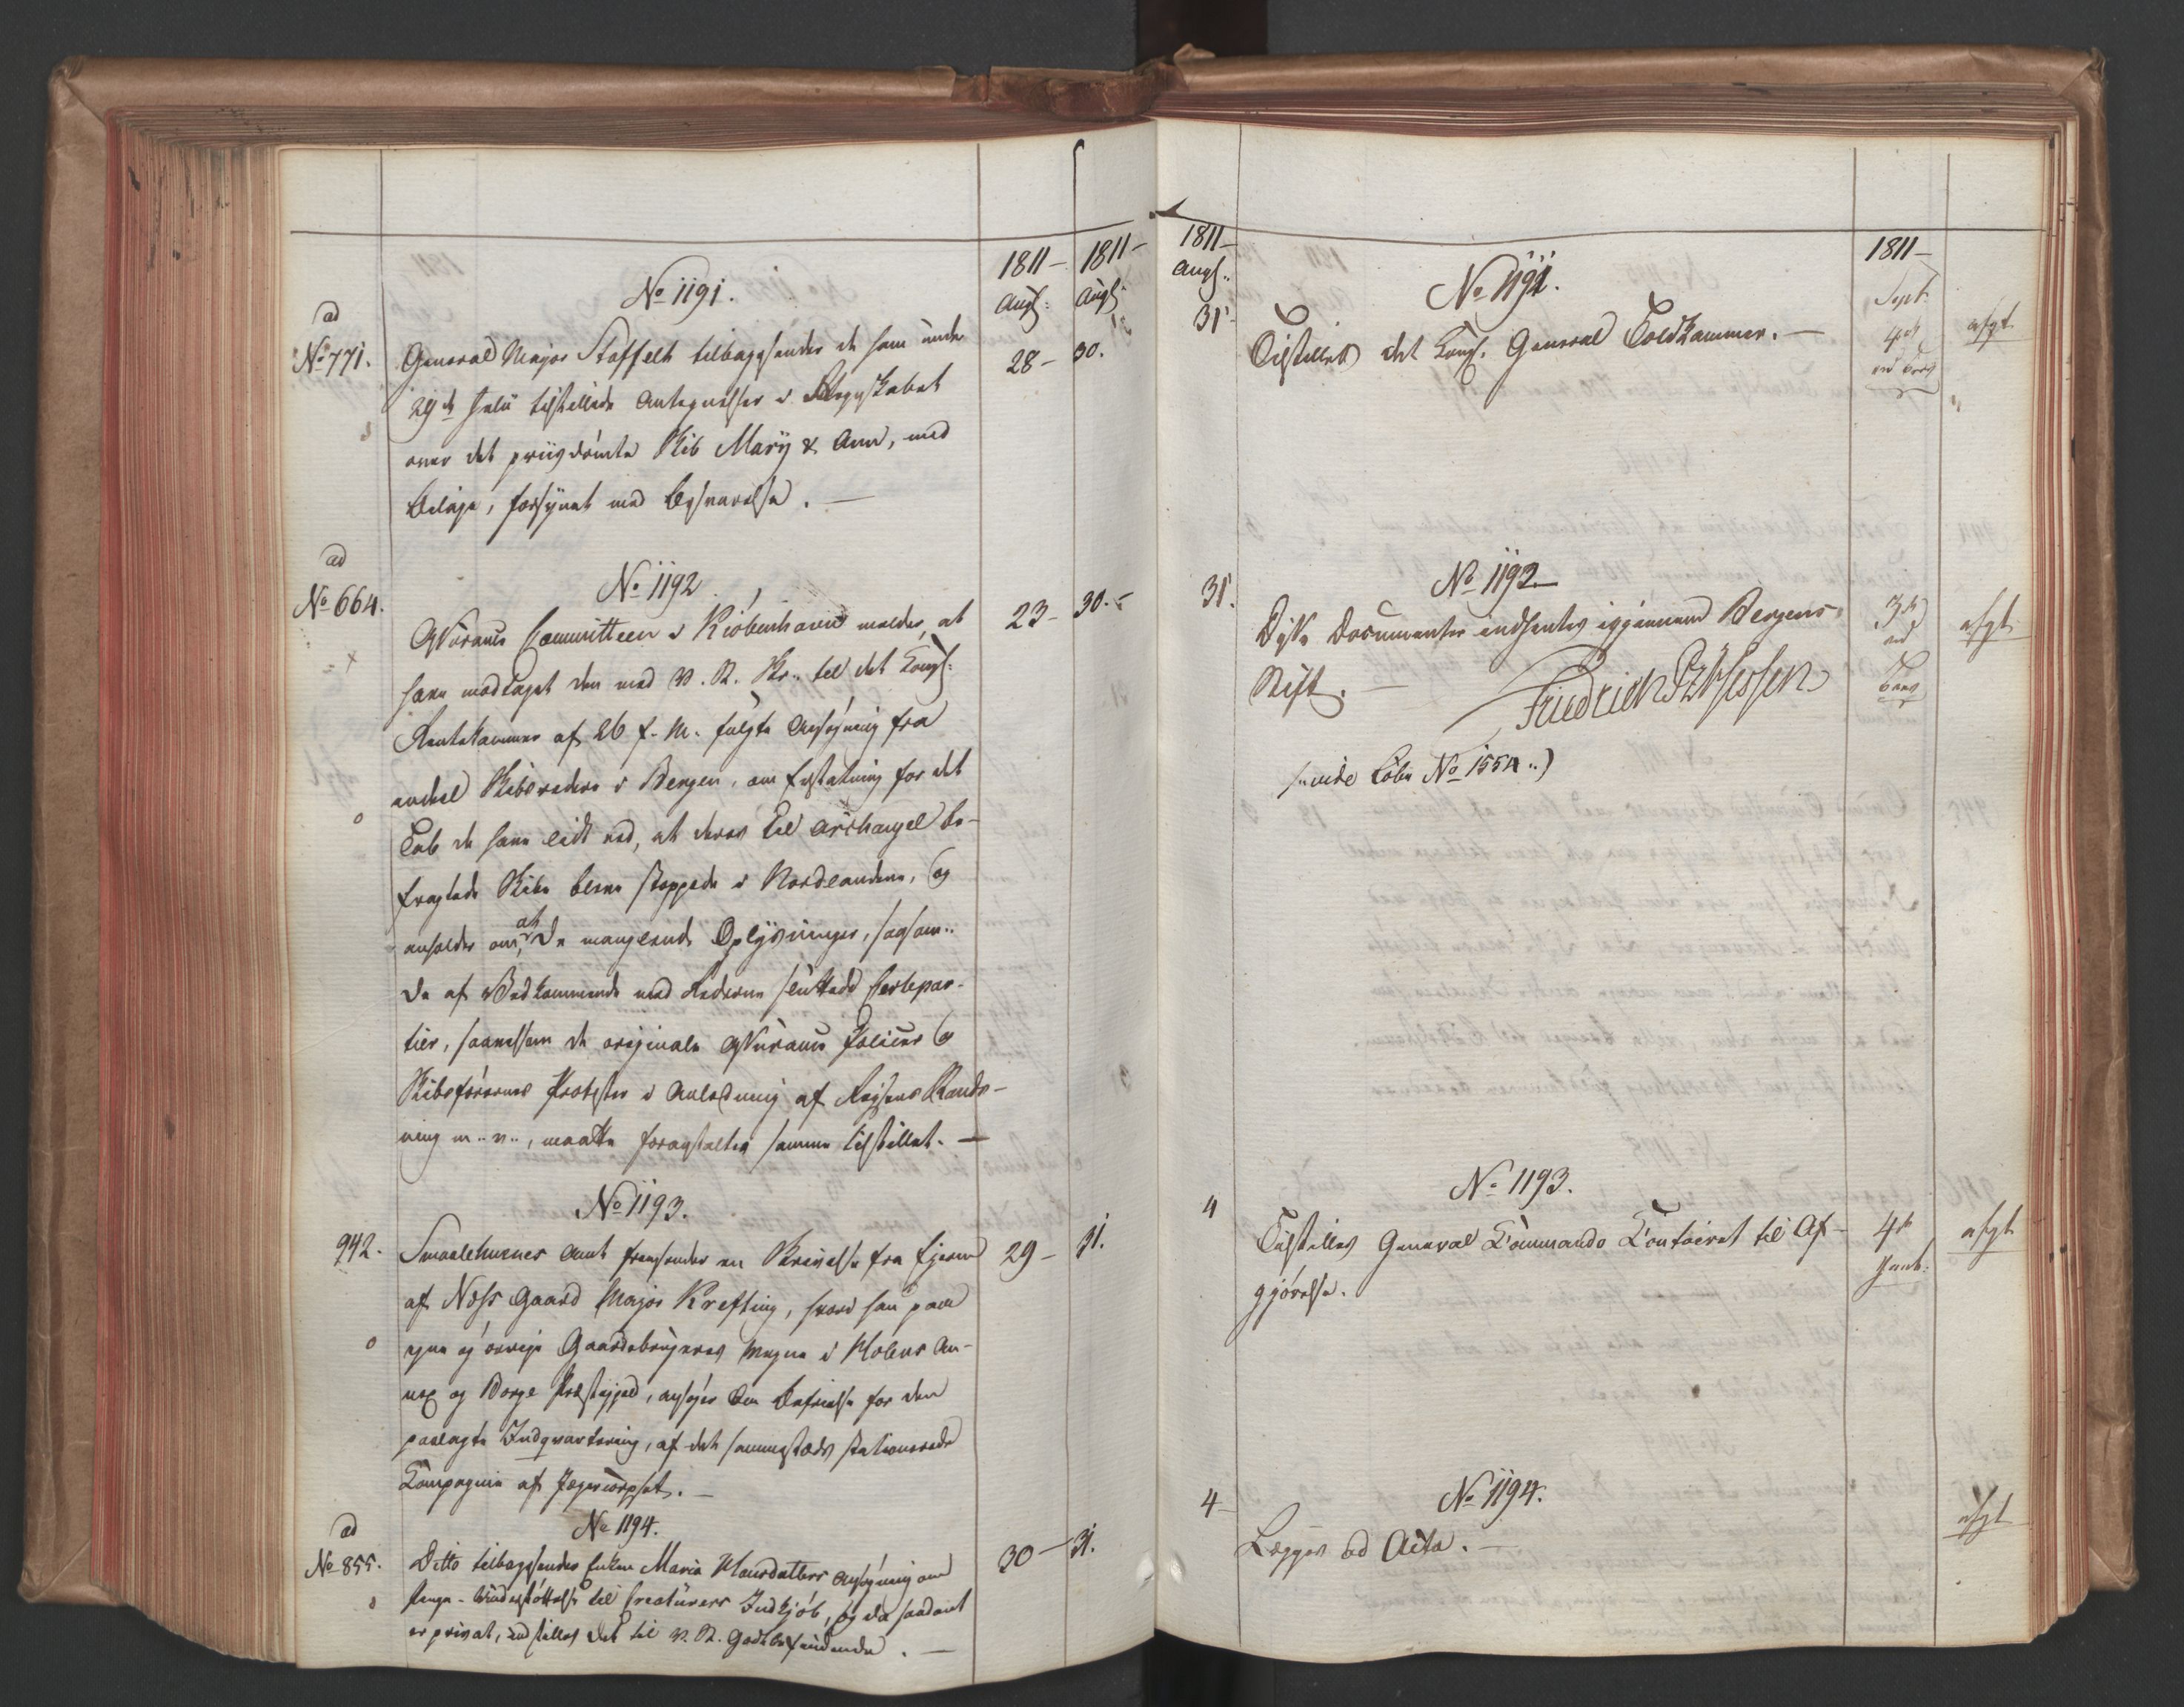 1811 –
Augs:
1811 –
Augs:
No 1191.
ad
No 771.
General Major Staffeldt tilbagesender de ham under
28 –
30.
29de Julii tilstillede Antegnelser i Regnskabet
over det priisdömte Skib Marÿ & Ann, med
Bilage, forsÿnet med Besvarelse. —
ad
No 664.
No 1192
Assurance Committeen i Kiöbenhavn melder, at
23 –
30. –
have modtaget den med V. R. Skr. til det Kongl:
Rentekammer af 26 f. M. fulgte Ansøgning fra
endeel Skibsredere i Bergen, om Erstatning for det
Tab de have lidt ved, at deres til Archangel be-
fragtede Skibe bleve stoppede i Nordlandene, og
anholder om, at De manglende Oplÿsninger, saasom..
De af Vedkommende med Rederne sluttede Certepar-
tier, saavelsom de originale Assurance Policer og
Skibsförernes Protester i Anledning af Reisens Stands-
ning m.. v.., maatte foranstaltes samme tilstillet. —
No 1193.
942.
Smaalehnenes Amt fremsender en Skrivelse fra Ejeren
29 –
31.
af Næss Gaard Major Krefting, hvori han paa
egne og øvrige Gaardebrugeres Vegne i Kolens An-
nex og Borge Præstegjeld, ansøger om Befrielse for den
paalagte Indqvartering, af det sammesteds stationerede
Compagnie af Jægercorpset. –
No 1194.
ad
No 855.
Ditto tilbagesender Enken Maria Hansdatters Ansøgning om
30 –
31.
Penge-Understöttelse til Creaturers Indkjöb, og da saadant
er privat, indstilles Det til V. R. Godtbefindende. —
1811 –
Augs..
31
No 1191.
1811 –
Sept.
4de
Tilstilles det Kongl. General Toldkammer. —
afgt
31.
No 1192 –
Disse Documenter indhentes igjennem Bergens
3de
afgt
Stift. —
Friedrich Pz v Hessen
(: vide Løbe No 1554 ..)
4
No 1193.
Tilstilles General Commando Contoiret til Af-
4de
afgt
gjörelse.
4 –
No 1194.
Lægges ad Acta. —
afgt